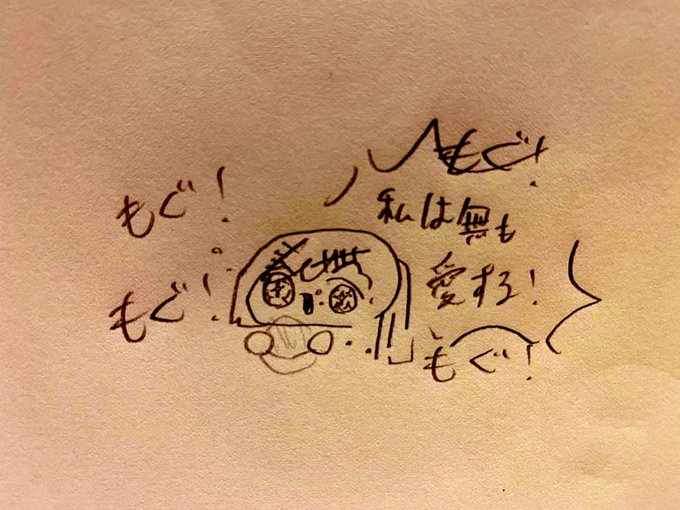 もぐ!
私は無も
愛する!
もぐ!
もぐ!
もぐ!